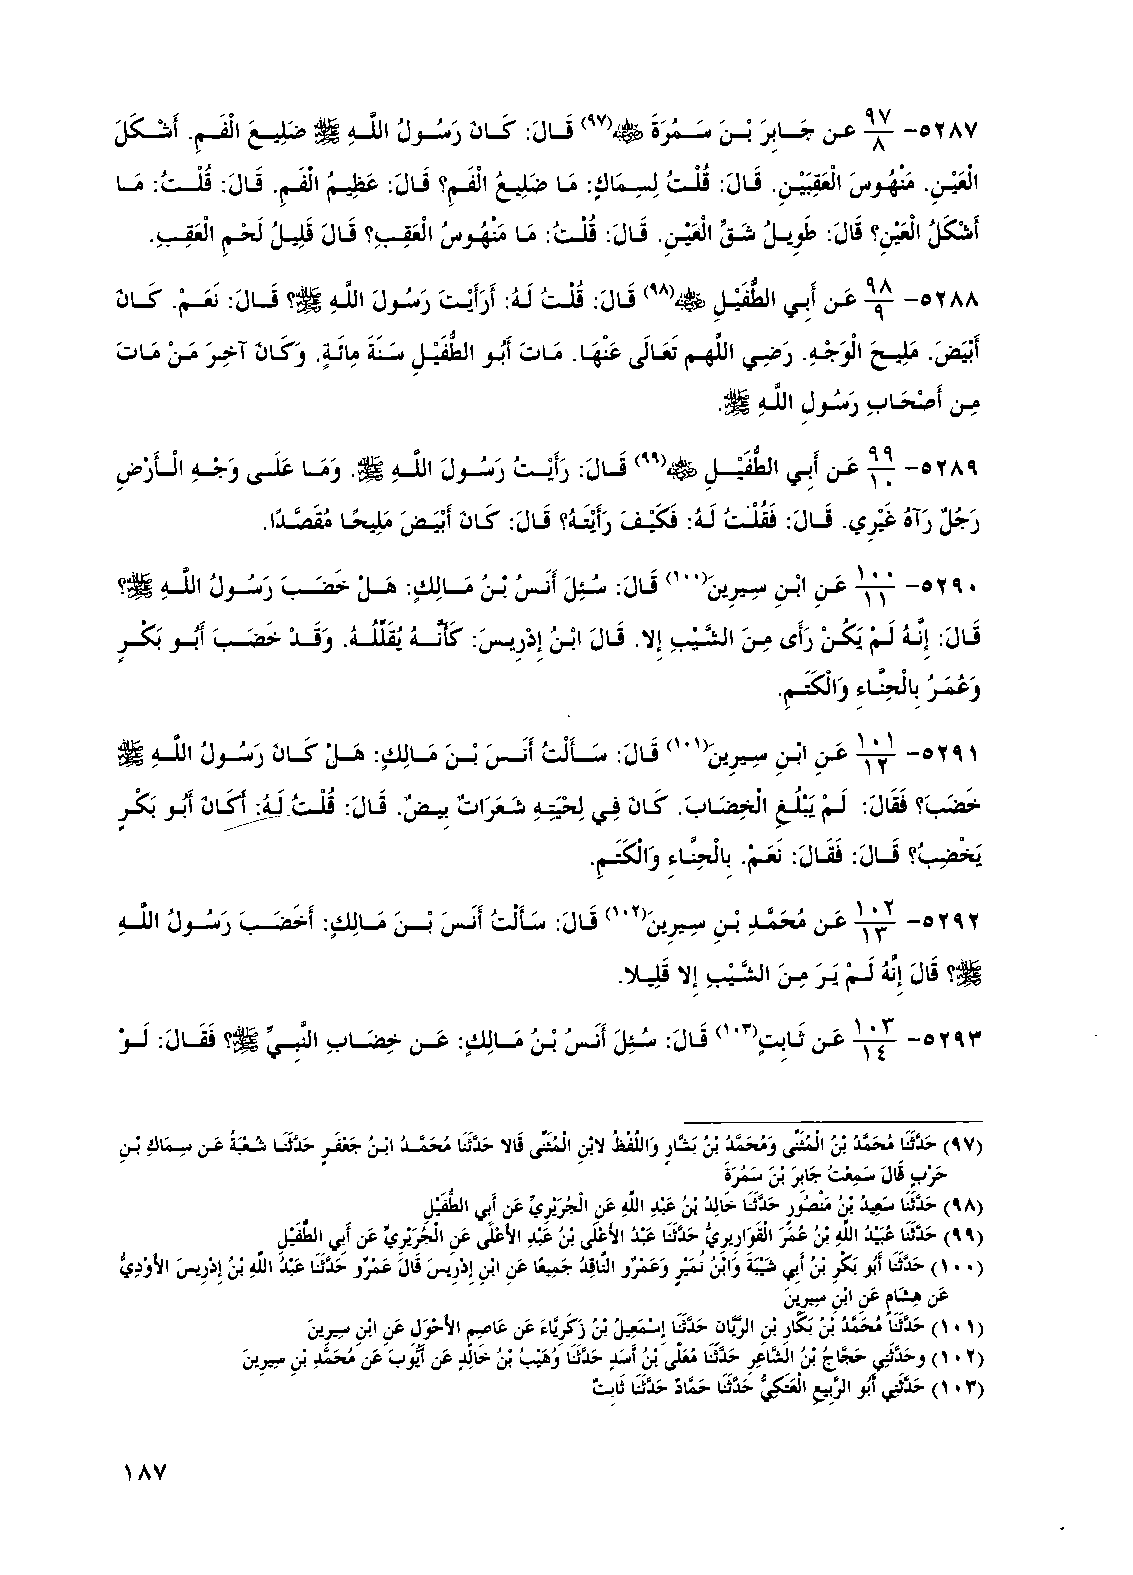 ٥٢٨٧- ٩٧/٨ عَن جَابِرَ بْنَ سَمُرَةَ ﷺ(٩٧) قَالَ: كَانَ رَسُولُ اللَّهِ ﷺ ضَلِيعَ الْفَمِ. أَشْكَلَ
الْعَيْنِ. مَنْهُوسَ الْعَقِبَيْنِ. قَالَ: قُلْتُ لِسِمَاكٍ: مَا ضَلِيعُ الْفَمِ؟ قَالَ: عَظِيمُ الْفَمِ. قَالَ: قُلْتُ: مَا
أَشْكَلُ الْعَيْنِ؟ قَالَ: طَوِيلُ شَقِّ الْعَيْنِ. قَالَ: قُلْتُ: مَا مَنْهُوسُ الْعَقِبِ؟ قَالَ قَلِيلُ لَحْمِ الْعَقِبِ.
٥٢٨٨- ٩٨/٩ عَن أَبِي الطُّفَيْلِ ﷺ(٩٨) قَالَ: قُلْتُ لَهُ: أَرَأَيْتَ رَسُولَ اللَّهِ ﷺ؟ قَالَ: نَعَمْ. كَانَ
أَبْيَضَ. مَلِيحَ الْوَجْهِ. رَضِي اللَّهم تَعَالَى عَنْهَا. مَاتَ أَبُو الطُّفَيْلِ سَنَةَ مِائَةٍ. وَكَانَ آخِرَ مَنْ مَاتَ
مِن أَصْحَابِ رَسُولِ اللَّهِ ﷺ.
٥٢٨٩- ٩٩/١٠ عَن أَبِي الطُّفَيْلِ ﷺ(٩٩) قَالَ: رَأَيْتُ رَسُولَ اللَّهِ ﷺ. وَمَا عَلَى وَجْهِ الْأَرْضِ
رَجُلٌ رَآهُ غَيْرِي. قَالَ: فَقُلْتُ لَهُ: فَكَيْفَ رَأَيْتَهُ؟ قَالَ: كَانَ أَبْيَضَ مَلِيحًا مُقَصَّدًا.
٥٢٩٠- ١٠٠/١١ عَنِ ابْنِ سِيرِينَ(١٠٠) قَالَ: سُئِلَ أَنَسُ بْنُ مَالِكٍ: هَلْ خَضَبَ رَسُولُ اللَّهِ ﷺ؟
قَالَ: إِنَّهُ لَمْ يَكُنْ رَأَى مِنَ الشَّيْبِ إِلا. قَالَ ابْنُ إِدْرِيسَ: كَأَنَّهُ يُقَلِّلُهُ. وَقَدْ خَضَبَ أَبُو بَكْرٍ
وَعُمَرُ بِالْحِنَّاءِ وَالْكَتَمِ.
٥٢٩١- ١٠١/١٢ عَنِ ابْنِ سِيرِينَ(١٠١) قَالَ: سَأَلْتُ أَنَسَ بْنَ مَالِكٍ: هَلْ كَانَ رَسُولُ اللَّهِ ﷺ
خَضَبَ؟ فَقَالَ: لَمْ يَبْلُغِ الْخِضَابَ. كَانَ فِي لِحْيَتِهِ شَعَرَاتٌ بِيضٌ. قَالَ: قُلْتُ لَهُ: أَكَانَ أَبُو بَكْرٍ
يَخْضِبُ؟ قَالَ: فَقَالَ: نَعَمْ. بِالْحِنَّاءِ وَالْكَتَمِ.
٥٢٩٢- ١٠٢/١٣ عَن مُحَمَّدِ بْنِ سِيرِينَ(١٠٢) قَالَ: سَأَلْتُ أَنَسَ بْنَ مَالِكٍ: أَخَضَبَ رَسُولُ اللَّهِ
ﷺ؟ قَالَ إِنَّهُ لَمْ يَرَ مِنَ الشَّيْبِ إِلا قَلِيلا.
٥٢٩٣- ١٠٣/١٤ عَن ثَابِتٍ(١٠٣) قَالَ: سُئِلَ أَنَسُ بْنُ مَالِكٍ: عَن خِضَابِ النَّبِيِّ ﷺ؟ فَقَالَ: لَوْ
(٩٧) حَدَّثَنَا مُحَمَّدُ بْنُ الْمُثَنَّى وَمُحَمَّدُ بْنُ بَشَّارٍ وَاللَّفْظُ لابْنِ الْمُثَنَّى قَالا حَدَّثَنَا مُحَمَّدُ ابْنُ جَعْفَرٍ حَدَّثَنَا شُعْبَةُ عَن سِمَاكِ بْنِ
حَرْبٍ قَالَ سَمِعْتُ جَابِرَ بْنَ سَمُرَةَ
(٩٨) حَدَّثَنَا سَعِيدُ بْنُ مَنْصُورٍ حَدَّثَنَا خَالِدُ بْنُ عَبْدِ اللَّهِ عَنِ الْجُرَيْرِيِّ عَن أَبِي الطُّفَيْلِ
(٩٩) حَدَّثَنَا عُبَيْدُ اللَّهِ بْنُ عُمَرَ الْقَوَارِيرِيُّ حَدَّثَنَا عَبْدُ الأَعْلَى بْنُ عَبْدِ الأَعْلَى عَنِ الْجُرَيْرِيِّ عَن أَبِي الطُّفَيْلِ
(١٠٠) حَدَّثَنَا أَبُو بَكْرِ بْنُ أَبِي شَيْبَةَ وَابْنُ نُمَيْرٍ وَعَمْرٌو النَّاقِدُ جَمِيعًا عَنِ ابْنِ إِدْرِيسَ قَالَ عَمْرٌو حَدَّثَنَا عَبْدُ اللَّهِ بْنُ إِدْرِيسَ الأَوْدِيُّ
عَن هِشَامٍ عَنِ ابْنِ سِيرِينَ
(١٠١) حَدَّثَنَا مُحَمَّدُ بْنُ بَكَّارِ بْنِ الرَّيَّانِ حَدَّثَنَا إِسْمَعِيلُ بْنُ زَكَرِيَّاءَ عَن عَاصِمٍ الأَحْوَلِ عَنِ ابْنِ سِيرِينَ
(١٠٢) و حَدَّثَنِي حَجَّاجُ بْنُ الشَّاعِرِ حَدَّثَنَا مُعَلَّى بْنُ أَسَدٍ حَدَّثَنَا وُهَيْبُ بْنُ خَالِدٍ عَن أَيُّوبَ عَن مُحَمَّدِ بْنِ سِيرِينَ
(١٠٣) حَدَّثَنِي أَبُو الرَّبِيعِ الْعَتَكِيُّ حَدَّثَنَا حَمَّادٌ حَدَّثَنَا ثَابِتٌ
١٨٧